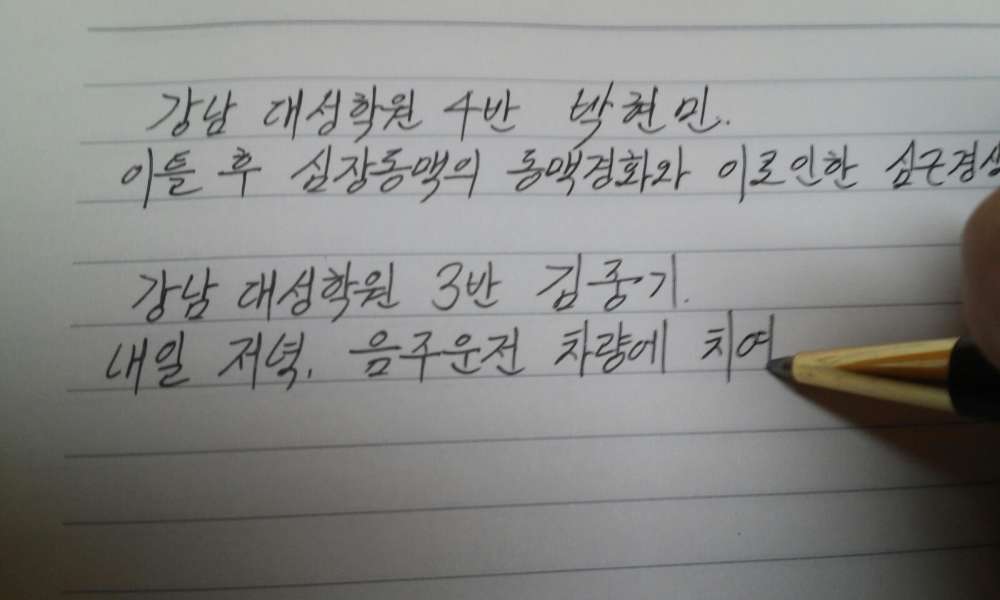 강남 대성학원 4반 박현민.
이틀 후 심장동맥의 동맥경화와 이로인한 심근경색
강남 대성학원 3반 김중기.
내일 저녁. 음주운전 차량에 치여